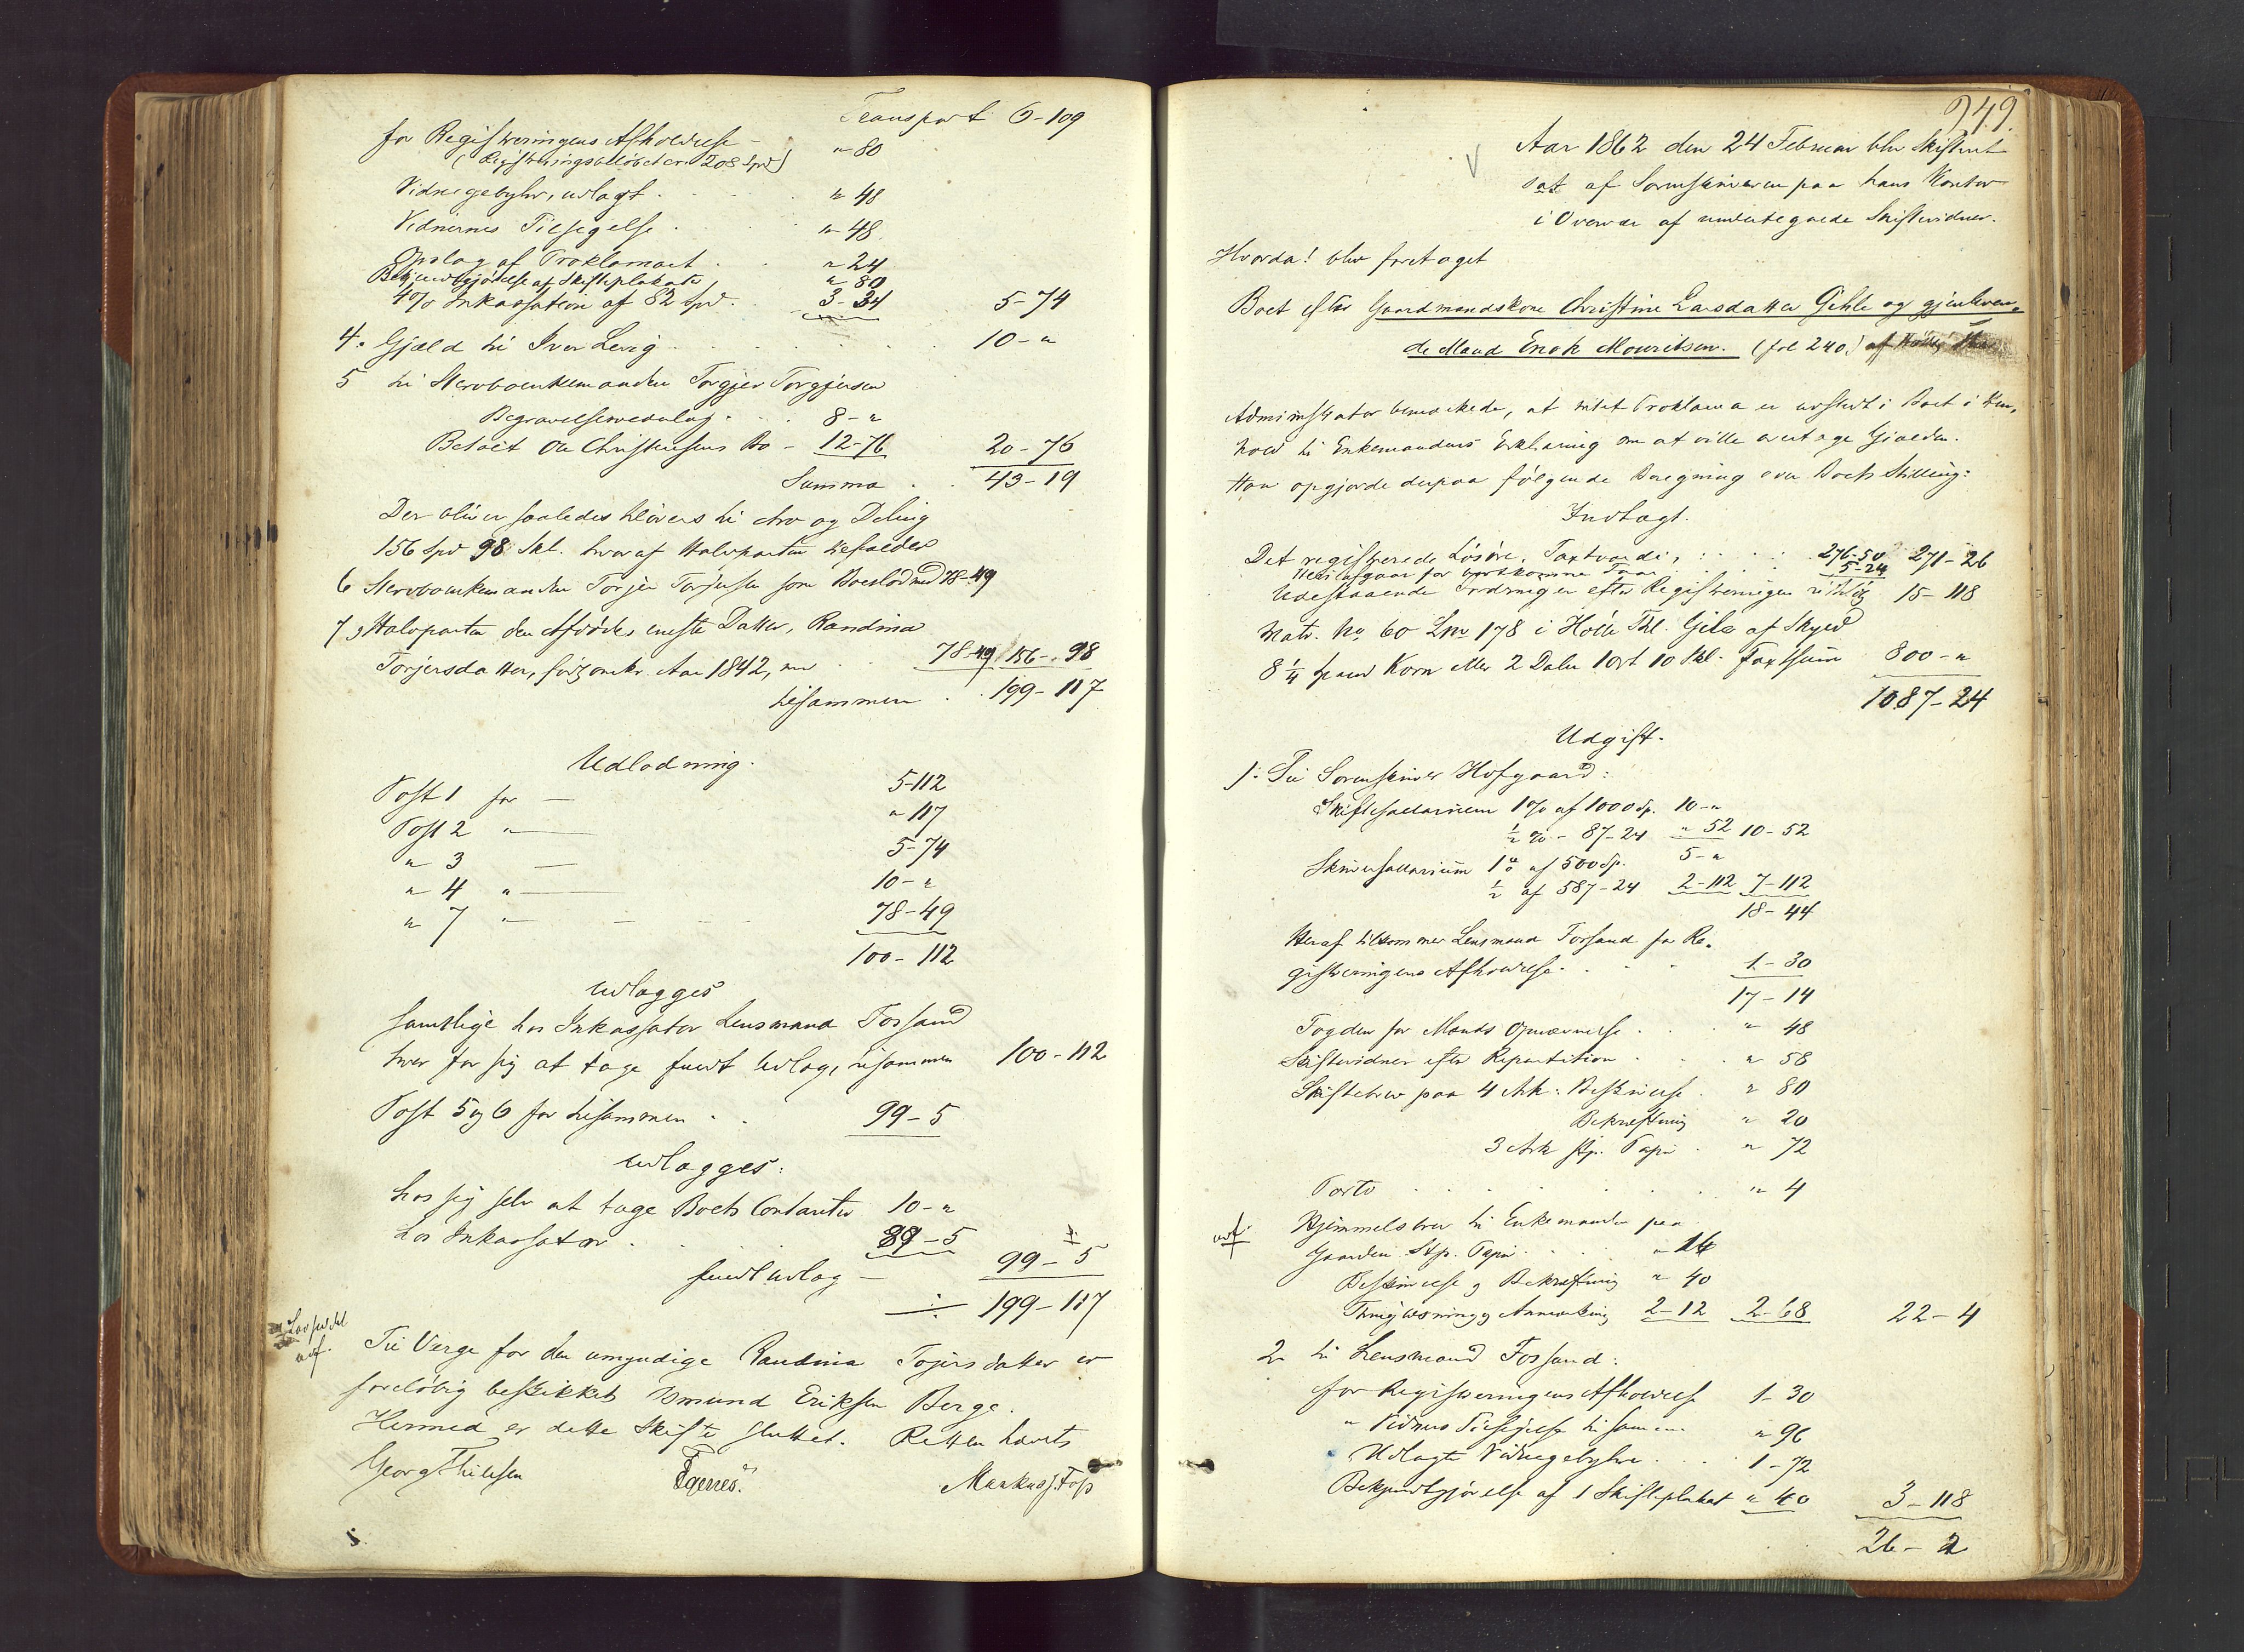 Transport 6-109
for Registreringens Afholdelse - " 80
(Registreringsbeløbet er 208 Spd)
Vidnegebyhr, udlagt . " 48
Vidnernes Tilsigelse . " 48
Opslag af Proklamaet . " 24
Bekjendtgjørelse af Skifteplakater " 80
4% Inkassation af 82 Spd. 3-34 5-74
4. Gjæld til Iver Levig 10-"
5 til Stervboenkemanden Torgjer Torgjersen
Begravelsesvederlag . 8-"
Betalt Ole Christensens Bo - 12-76 20-76
Summa . 43-19
Der bliver saaledes tilovers til Arv og Deling
156 Spd 98 Skl. hvoraf Halvparten tilfalder
6 Stervboenkemanden Torjer Torjersen som Boeslod med 78-49
7 og Halvparten den Afdødes eneste Datter, Randina
Torjersdatter, født omkr. Aar 1842, med 78-49 156-98
tilsammen . 199-117
Udlodning.
Post 1 for — 5-112
Post 2 " — " 117
" 3 — 5-74
" 4 " — 10-"
" 7 " — 78-49
100-112
udlægges
samtlige hos Inkassator Lensmand Fossand
hver for sig at tage fuldt Udlæg, tilsammen 100-112
Post 5 og 6 for tilsammen . 99-5
udlægges:
hos sig selv at tage Boets Contanter 10-"
hos Inkassator . 89-5
fuldt Udlæg — 99-5
÷ 199-117
Til Verge for den umyndige Randina Tojersdatter er
foreløbig beskikket Osmund Eriksen Berge.
Hermed er dette Skifte sluttet. Retten hævet
Georg Thilesen Egenes. Markus J. Foss
249.
Aar 1862 den 24 Februar blev Skifteret
sat af Sorenskriveren paa hans Kontor
i Overvær af undertegnede Skiftevidner.
Hvorda! blev foretaget
Boet efter Gaardmandskone Christine Larsdatter Gihle og gjenleven-
de Mand Enok Mouritsen. (fol 240.) af
Administrator bemærkede, at intet Proklama er udstedt i Boet i Hen-
hold til Enkemandens Erklæring om at ville overtage Gjælden.
Han opgjorde derpaa følgende Beregning over Boets Stilling:
Indtægt.
Det registrerede Løsøre, Taxtværdi, 276-50 271-26
Herifra gaar for bortkomne 5-24
Udestaaende Fordringer efter Registreringen 15-118
Matr. No 60 Lno 178 i Høle Thl. Gile af Skyld
8 1/4 Spand Korn eller 2 Daler 1 ort 10 Skl. Taxtsum 800-"
1087-24
Udgift.
1. Til Sorenskriver Hofgaard:
Skiftesallarium 1% af 1000 Sp. 10-"
1/2 % - 87-24 " 52 10-52
Skriversallarium 1% af 500 Sp. 5-"
1/2 af 587-24 2-112 7-112
18-44
Heraf tilkommer Lensmand Fossand for Re-
gistreringens Afholdelse . 1-30
17-14
Fogden for Mænds Opnævnelse . " 48
Skiftevidner efter Repartition . " 58
Skiftebrev paa 4 Ark: Beskrivelse . " 80
Bekræftning " 20
3 Ark stp. Papir . " 72
Porto " 4
udf.
Hjemmelsbrev til Enkemanden paa
Gaarden Stp. Papir . " 16
Beskrivelse og Bekræftning " 40
Thinglæsning og Anmærkning 2-12 2-68 22-4
2 til Lensmand Fossand:
for Registreringens Afholdelse 1-30
" Vidners Tilsigelse tilsammen " 96
" Udlagte Vidnegebyhr . 1-72
Bekjendtgjørelse af 1 Skifteplakat " 40 3-118
26-2